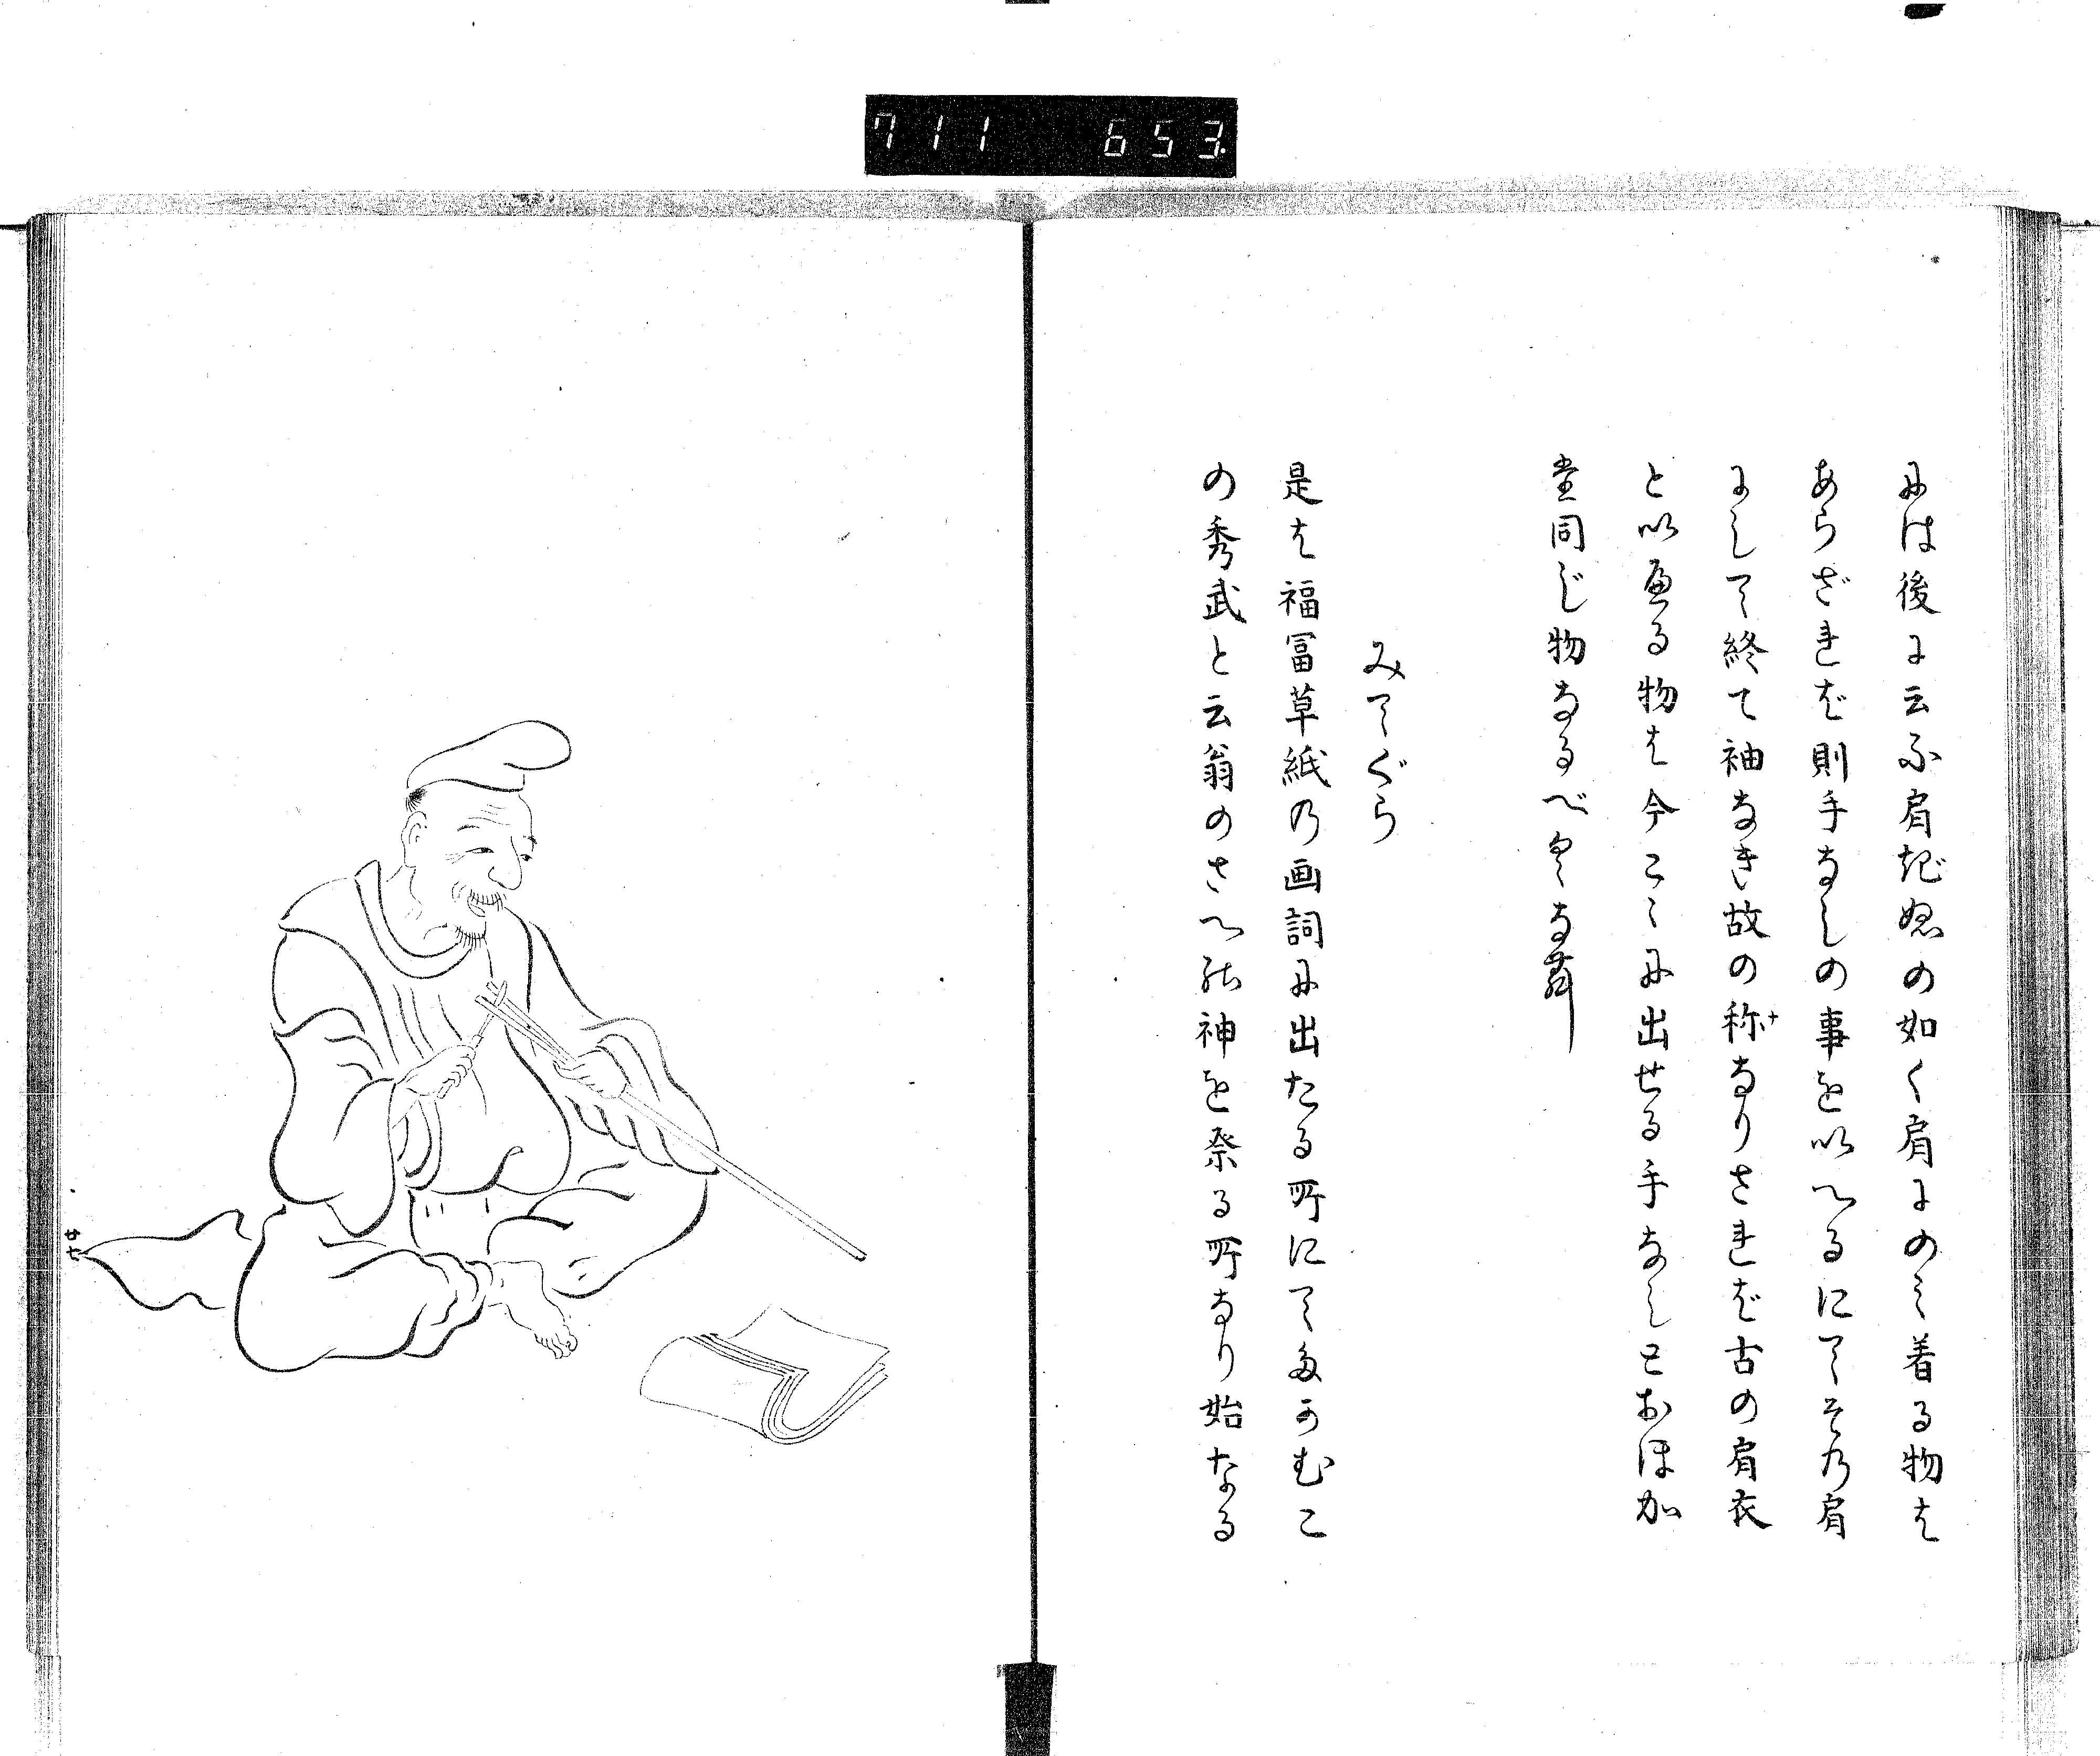 711 653
には後に云ふ肩ぎぬの如く肩にのみ着る物は
あらざれば則手なしの事を以へるにてその肩
にして終て袖なき故の称なりされば古の肩衣
と以へる物は今こゝに出せる手なしとおほか
た同じ物なるべくなむ
みてぐら
是は福冨草紙の画詞に出たる所にてたかむこ
の秀武と云翁のさへの神を祭る所なり始なる
廿七